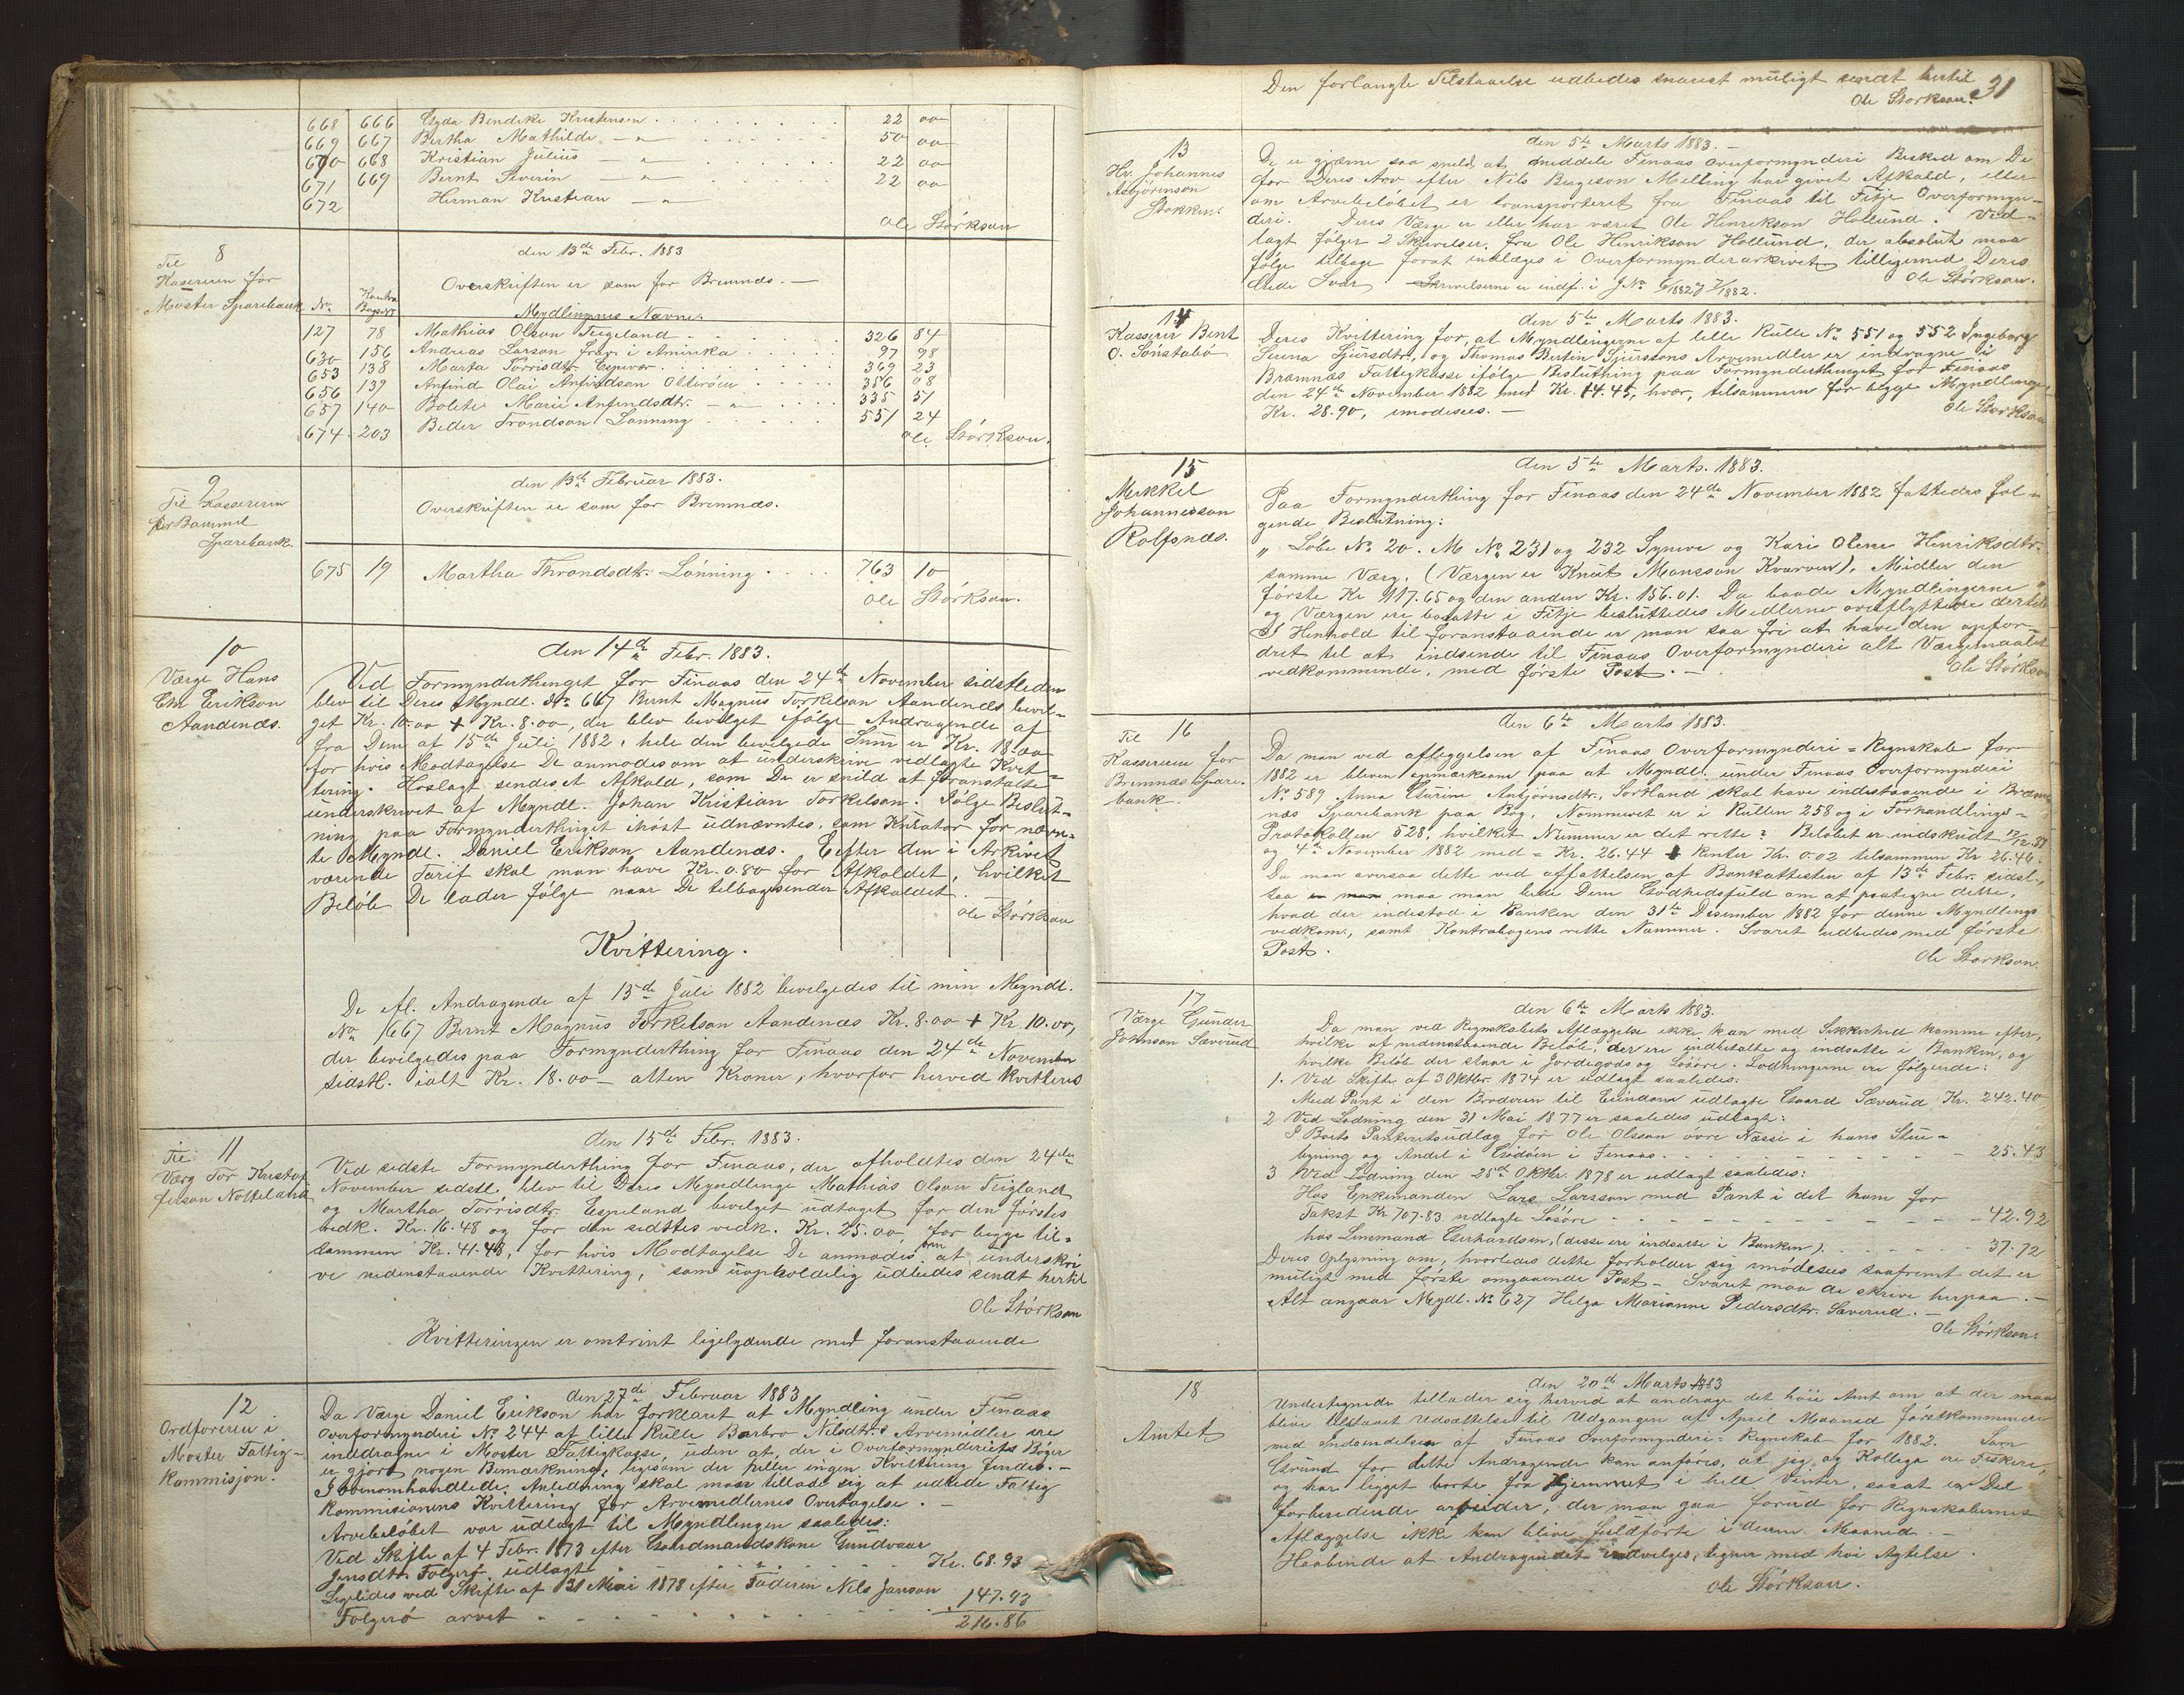 668 666 Gyda Bendike Kristensen 22 00
669 667 Bertha Mathilde — " — 50 00
670 668 Kristian Julius — " — 22 00
671 669 Bernt Severin — " — 22 00
672 Herman Kristian — " —
Ole Störkson
8
Til
Kasereren for
Moster Sparebank
den 13de Febr. 1883
Overskriften er som for Bremnæs. —
No. Kontra Bogs No Myndlingens Navne.
127 78 Mathias Olson Teigeland 326 84
630 156 Andreas Larson frav. i Amerika 97 98
653 138 Marta Torrisdtr. Espevær 369 23
656 139 Anfind Olai Anfindson Otterøen 386 08
657 140 Bolete Marie Anfindsdtr. — " — 335 51
674 203 Peder Trondson Lønning 551 24
Ole Störkson.
9
Til Kassereren
for Bømmel
Sparebank.
den 13de Februar 1883.
Overskriften er som for Bremnæs.
675 19 Martha Throndsdtr. Lønning 763 10
Ole Störkson.
10
Værge Hans
Chr Erikson
Aandenæs.
den 14de Febr. 1883.
Ved Formynderthinget for Finaas den 24de November sidstleden
blev til Deres Myndl. No 667 Bernt Magnus Torkelson Aandenæs bevil-
get Kr. 10.00 + Kr. 8.00, der blev bevilget ifölge Andragende af
fra Dem af 15de Juli 1882, hele den bevilgede Sum er Kr. 18.00
for hvis Modtagelse De anmodes om at underskrive vedlagte Kvit-
tering. Hoslagt sendes et Afkald, som De er snild at foranstalte
underskrevet af Myndl. Johan Kristian Torkelson. Ifölge Beslut-
ning paa Formynderthinget ihöst udnævntes, som Kurator for nævn-
te Myndl. Daniel Erikson Aandenæs. Efter den i Arkivet
værende Tarif skal man have Kr. 0.80 for Afkaldet, hvilket
Belöb De lader fölge naar De tilbagesender Afkaldet.
Ole Störkson
Kvittering.
De fl. Andragende af 15de Juli 1882 bevilgedes til min Myndl.
No 667 Bernt Magnus Torkelson Aandenæs Kr. 8.00 + Kr. 10.00,
der bevilgedes paa Formynderthing for Finaas den 24de November
sidstl. ialt Kr. 18.00 — atten Kroner, hvorfor herved kvitteres
11
Til
Værg Tor Kristof
ferson Nøtteland
den 15de Febr. 1883.
Ved sidste Formynderthing for Finaas, der afholdtes den 24de
November sidstl. blev til Deres Myndlinge Mathias Olson Teigland
og Martha Torrisdtr. Espeland bevilget udtaget for den förstes
vedk. Kr. 16.48 og for den sidstes vedk. Kr. 25.00, for begge til-
sammen Kr. 41.48, for hvis Modtagelse De anmodes om at underskri
ve nedenstaaende Kvittering, som uopholdelig udbedes sendt hertil
Ole Störkson
Kvitteringen er omtrint ligelydende med foranstaaende
12
Ordföreren i
Moster Fattig-
kommisjon.
den 27de Februar 1883
Da Værge Daniel Erikson har forklaret at Myndling under Finaas
Overformynderi No. 244 af lille Rulle Barbro Nilsdtr.s Arvemidler ere
inddragne i Moster Fattigkasse, uden at, der i Overformynderiets Böger
er gjort nogen Bemærkning, ligesom der heller ingen Kvittering findes. —
I ovenomhandlede Anledning skal man tillade sig at udbede Fattig
kommisionens Kvittering for Arvemidlernes Overtagelse. —
Arvebelöbet var udlagt til Myndlingen saaledes:
Ved Skifte af 4 Febr. 1873 efter Gaardmandskone Gundvaar
Jensdtr. Folgerö udlagt Kr. 68.93
Ligeledes ved Skifte af 31 Mai 1878 efter Faderen Nils Janson
Folgerö arvet 147.93
216.86
Den forlangte Tilstaaelse udbedes snarest muligt sendt hertil
Ole Störkson. 31
13
Hr. Johannes
Asbjörnson
Stokken.
den 5te Marts 1883. —
De er gjærne saa snild, at meddele Finaas Overformynderi Besked om De
for Deres Arv efter Nils Birgeson Melling har givet Afkald, eller
om Arvebelöbet er transporteret fra Finaas til Fitje Overformyn-
deri. Deres Værge er eller har været Ole Henrikson Hollund. Ved-
lagt fölger 2 Skrivelser fra Ole Henrikson Hollund, der absolut maa
fölge tilbage forat indlæges i Overformynderarkivet tilligemed Deres
ærede Svar. Skrivelserne er indf. i J No 6/1882 og 7/1882.
Ole Störkson.
14
Kasserer Bent
O. Sönstabö
den 5te Marts 1883.
Deres Kvittering for, at Myndlingerne af lille Rulle No 551 og 552 Ingeborg
Serina Sjursdtr, og Thomas Bertin Sjurssons Arvemidler er inddragne i
Bremnæs Fattigkasse ifölge Beslutning paa Formynderthinget for Finaas
den 24de November 1882 med Kr. 14.45, hver, tilsammen for begge Myndlinger
Kr. 28.90, imödeses. —
Ole Störkson
15
Mikkel
Johannesson
Rolfsnæs.
den 5te Marts. 1883.
Paa Formynderthing for Finaas den 24de November 1882 fattedes föl-
gende Beslutning:
„ Löbe No 20. M No 231 og 232 Syneve og Kari Olene Henriksdtr.
samme Værg. (Værgen er Knut Monsson Kvarven). Midler den
förste Kr 117.65 og den anden Kr. 156.01. Da baade Myndlingerne
og Værgen ere bosatte i Fitje besluttedes Midlerne overflyttede dertil"
I Henhold til foranstaaende er man saa fri at have den opfor-
dret til at indsende til Finaas Overformynderi alt Værgemaalet
vedkommende, med förste Post. —
Ole Störkson
16
Til
Kassereren for
Bremnæs Spare-
bank.
den 6te Marts 1883.
Da man ved aflæggelsen af Finaas Overformynderi = Regnskab for
1882 er bleven opmærksom paa at Myndl. under Finaas Overformynderi
No. 589 Anna Gurine Anbjörnsdtr. Sortland skal have indestaaende i Brem-
næs Sparebank paa Bog. Nommeret er i Rullen 258 og i Forhandlings-
Protokollen 528, hvilket Nummer er det rette? Belöbet er indskudt 17/12.81
og 4de November 1882 med = Kr. 26.44 + Renter Kr. 0.02 tilsammen Kr 26.46.
Da man oversaa dette ved affattelsen af Bankattesten af 13de Febr. sidstl.,
saa maa man bede Dem Godhedsfuld om at paategne dette,
hvad der indestod i Banken den 31te Desember 1882 for denne Myndlings
vedkom., samt Kontrabogens rette Nummer. Svaret udbedes med förste
Post.
Ole Störkson.
17
Værge Gunder
Johnson Sæverud
den 6te Marts 1883.
Da man ved Regnskabets Aflæggelse ikke kan med Sikkerhed komme efter,
hvilke af nedenstaaende Belöb, der ere indbetalte og indsatte i Banken, og
hvilke Belöb der staar i Jordegods og Lösöre. Lodningerne ere fölgende:
1. Ved Skifte af 3 Oktbr. 1874 er udlagt saaledes:
Med Pant i den Broderen til Eiendom udlagte Gaard Sæverud Kr. 242.40
2 Ved Lodning den 31 Mai 1877 er saaledes udlagt:
I Boets Panteretsudlæg for Ole Olsson övre Næsse i hans Stue-
bygning og Andel i Godöen i Finaas 25.43
3 Ved Lodning den 25de Oktbr. 1878 er udlagt saaledes:
Hos Enkemanden Lars Larsson med Pant i det ham for
Takst Kr 707.83 udlagte Lösöre 42.92
hos Lensmand Gerhardsen, (disse ere indsatte i Banken) 37.72
Deres Oplysning om, hvorledes dette forholder sig imödeses saafremt det er
muligt med förste omgaaende Post — Svaret maa de skrive herpaa. —
Alt angaar Mydl. No 627 Helga Marianne Pedersdtr. Sæverud. —
Ole Störkson.
18
Amtet
den 20de Marts 1883
Undertegnede tillader sig herved at andrage det höie Amt om at der maa
blive tilstaaet Udsættelse til Udgangen af April Maaned förstkommende
med Indsendelsen af Finaas Overformynderi = Regnskab for 1882. Som
Grund for dette Andragende kan anföres, at jeg og Kollega ere Fiskere,
og har ligget borte fra Hjemmet i hele Vinter, saaat en Del
forberedende arbeider, der maa gaa forud for Regnskabernes
Aflæggelse ikke kan blive fuldförte i denne Maaned. —
Haabende at Andragendet indvilges, tegner med höi Agtelse.
Ole Störkson.